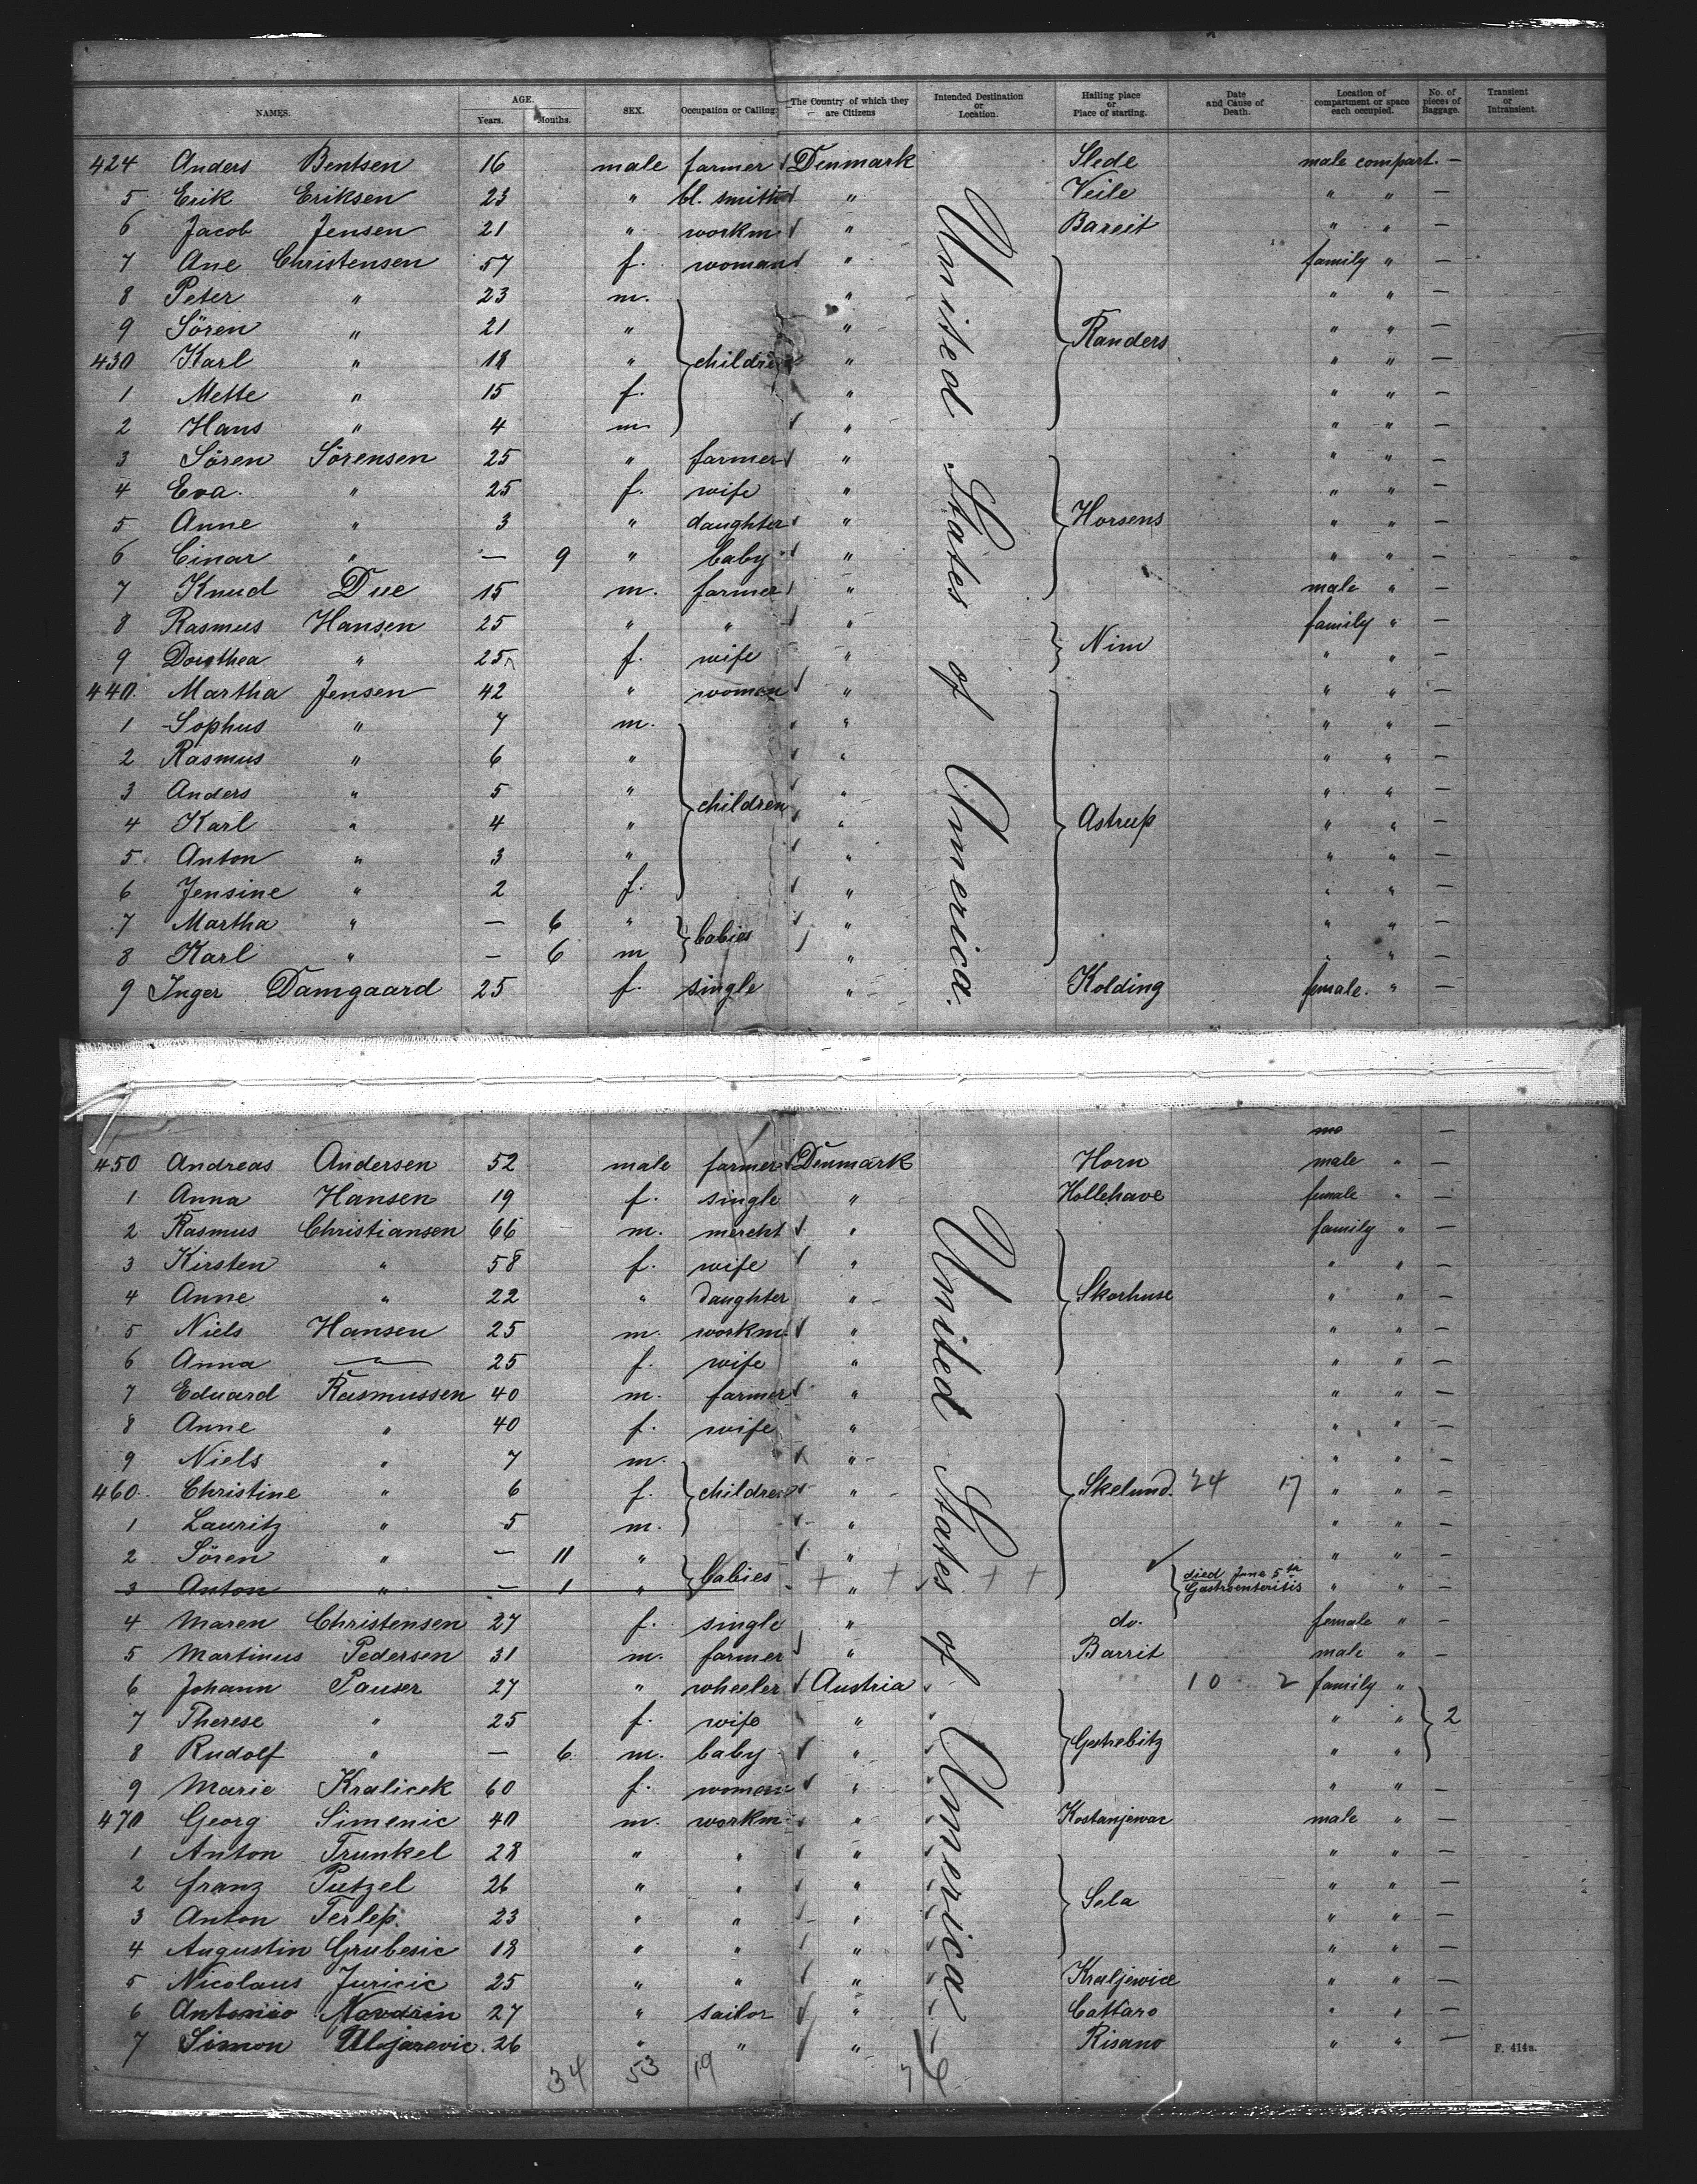 NAMES. AGE. Years. Months. SEX. Occupation or Calling. The Country of which they are Citizens Intended Destination or Location. Hailing place or Place of starting. Date and Cause of Death. Location of compartment or space each occupied. No. of pieces of Baggage. Transient or Intransient.
424 Anders Bentsen 16 male farmer Denmark Slede male compart. —
5 Erik Eriksen 23 " bl. smith " Veile " " —
6 Jacob Jensen 21 " workm " Bareit " " —
7 Ane Christensen 57 f. woman " family " —
8 Peter " 23 m. " " " —
9 Sören " 21 " " Randers " " —
430 Karl " 18 " children " " " —
1 Mette " 15 f. " " " —
2 Hans " 4 m " " " —
3 Sören Sörensen 25 " farmer " " " —
4 Eva " 25 f. wife " " " —
5 Anne " 3 " daughter " Horsens " " —
6 Einar " — 9 " baby " " " —
7 Knud Due 15 m. farmer " male " —
8 Rasmus Hansen 25 " " " family " —
9 Dorothea " 25 f. wife " Nim " " —
440 Martha Jensen 42 " woman " " " —
1 Sophus " 7 m. " " " —
2 Rasmus " 6 " " " " —
3 Anders " 5 " children " " " —
4 Karl " 4 " " Astrup " " —
5 Anton " 3 " " " " —
6 Jensine " 2 f. " " " —
7 Martha " — 6 " babies " " " —
8 Karl " — 6 m " " " —
9 Inger Damgaard 25 f. single " Kolding female. " —
United States of America.
mo —
450 Andreas Andersen 52 male farmer Denmark Horn male " —
1 Anna Hansen 19 f. single " Hollehave female " —
2 Rasmus Christiansen 66 m. mercht " family " —
3 Kirsten " 58 f. wife " " " —
4 Anne " 22 " daughter " Skorhuse " " —
5 Niels Hansen 25 m. workm. " " " —
6 Anna " 25 f. wife " " " —
7 Eduard Rasmussen 40 m. farmer " " " —
8 Anne " 40 f. wife " " " —
9 Niels " 7 m. " " " —
460 Christine " 6 f. children " Skelund. 24 17 " " —
1 Lauritz " 5 m. " " " —
2 Sören " — 11 " " " " —
3 Anton " — 1 " babies + " + + + died June 5th Gastroenteritis " " —
4 Maren Christensen 27 f. single " do. female " —
5 Martinus Pedersen 31 m. farmer " Barrit male " —
6 Johann Pauser 27 " wheeler Austria 10 2 family "
7 Therese " 25 f. wife " " " 2
8 Rudolf " — 6 m. baby " " "
9 Marie Kralicek 60 f. woman " " " —
470 Georg Simenic 40 m. workm. " Kostanjewac male " —
1 Anton Trunkel 28 " " " " " —
2 Franz Putzel 26 " " " Sela " " —
3 Anton Terlep. 23 " " " " " —
4 Augustin Grubesic 18 " " " " " —
5 Nicolaus Juricic 25 " " " Kraljewice " " —
6 Antonio 27 " sailor " Cattaro " " —
7 Simon 26 " " " Risano " " —
United States of America
34 53 19
F. 414a.